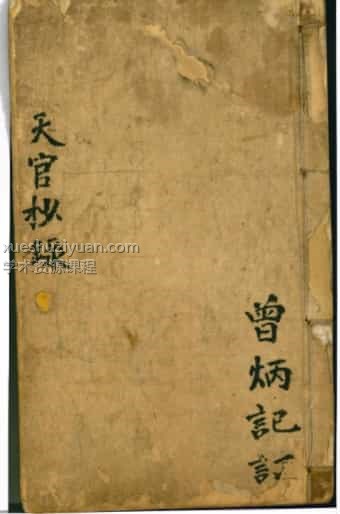 天官抄
xueshuziyuan.com
学术资源课程
曾炳記訂